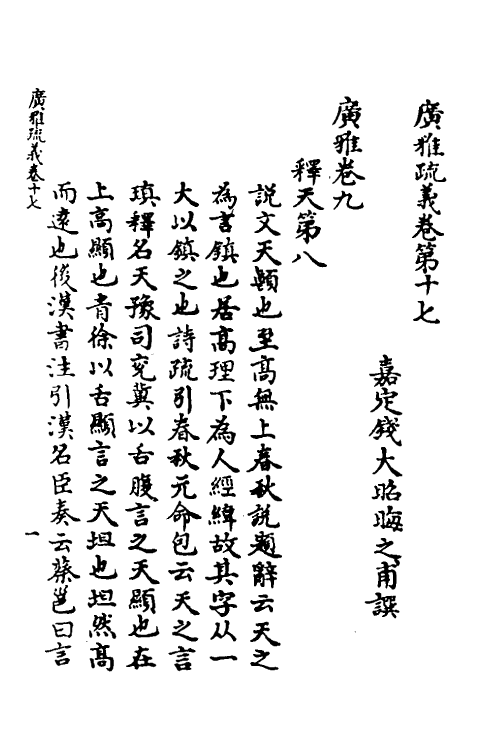 廣雅疏義卷第十七
嘉定錢大昭晦之甫譔
廣雅卷九
釋天第八
說文天顛也至高無上春秋說題辭云天之
為言鎮也居高理下為人經緯故其字从一
大以鎮之也詩疏引春秋元命包云天之言
瑱釋名天豫司兖冀以舌腹言之天顯也在
上高顯也青徐以舌顯言之天坦也坦然高
而遠也後漢書注引漢名臣奏云蔡邕曰言
廣雅疏義卷十七
一